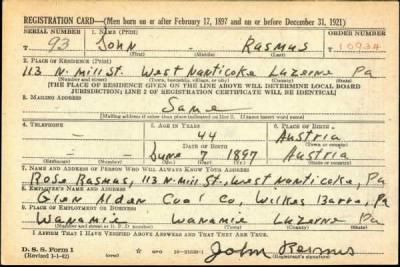 REGISTRATION CARD—(Men born on or after February 17, 1897 and on or before December 31, 1921)
SERIAL NUMBER 1. NAME (Print) ORDER NUMBER
T 93 John - Rasmus T 10934
(First) (Middle) (Last)
2. PLACE OF RESIDENCE (Print)
113 N. Mill St. West Nanticoke Luzerne Pa
(Number and street) (Town, township, village, or city) (County) (State)
[THE PLACE OF RESIDENCE GIVEN ON THE LINE ABOVE WILL DETERMINE LOCAL BOARD
JURISDICTION; LINE 2 OF REGISTRATION CERTIFICATE WILL BE IDENTICAL]
3. MAILING ADDRESS
Same
[Mailing address if other than place indicated on line 2. If same insert word same]
4. TELEPHONE 5. AGE IN YEARS 6. PLACE OF BIRTH
- 44 Austria
DATE OF BIRTH (Town or county)
- June 7 1897 Austria
(Exchange) (Number) (Mo.) (Day) (Yr.) (State or country)
7. NAME AND ADDRESS OF PERSON WHO WILL ALWAYS KNOW YOUR ADDRESS
Rose Rasmus, 113 N. Mill St., West Nanticoke, Pa
8. EMPLOYER'S NAME AND ADDRESS
Glen Alden Coal Co, Wilkes Barre, Pa
9. PLACE OF EMPLOYMENT OR BUSINESS
Wanamie Wanamie Luzerne Pa
(Number and street or R. F. D. number) (Town) (County) (State)
I AFFIRM THAT I HAVE VERIFIED ABOVE ANSWERS AND THAT THEY ARE TRUE.
D. S. S. Form 1
(Revised 1-1-42) (over) John Rasmus
(Registrant's signature)